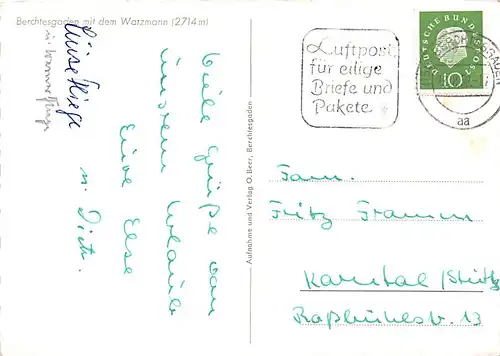 Berchtesgaden mit dem Watzmann (2714 m)
Viele Grüße von
unserem Urlaub
Eure Else
u. Dieter.
Luise
Aufnahme und Verlag O. Beer, Berchtesgaden
Luftpost
für eilige
Briefe und
Pakete
DEUTSCHE BUNDESPOST
10
BERCHTESGADEN
aa
Fam.
Fritz Framm
Korntal/Stuttg
Roßbühlstr. 13